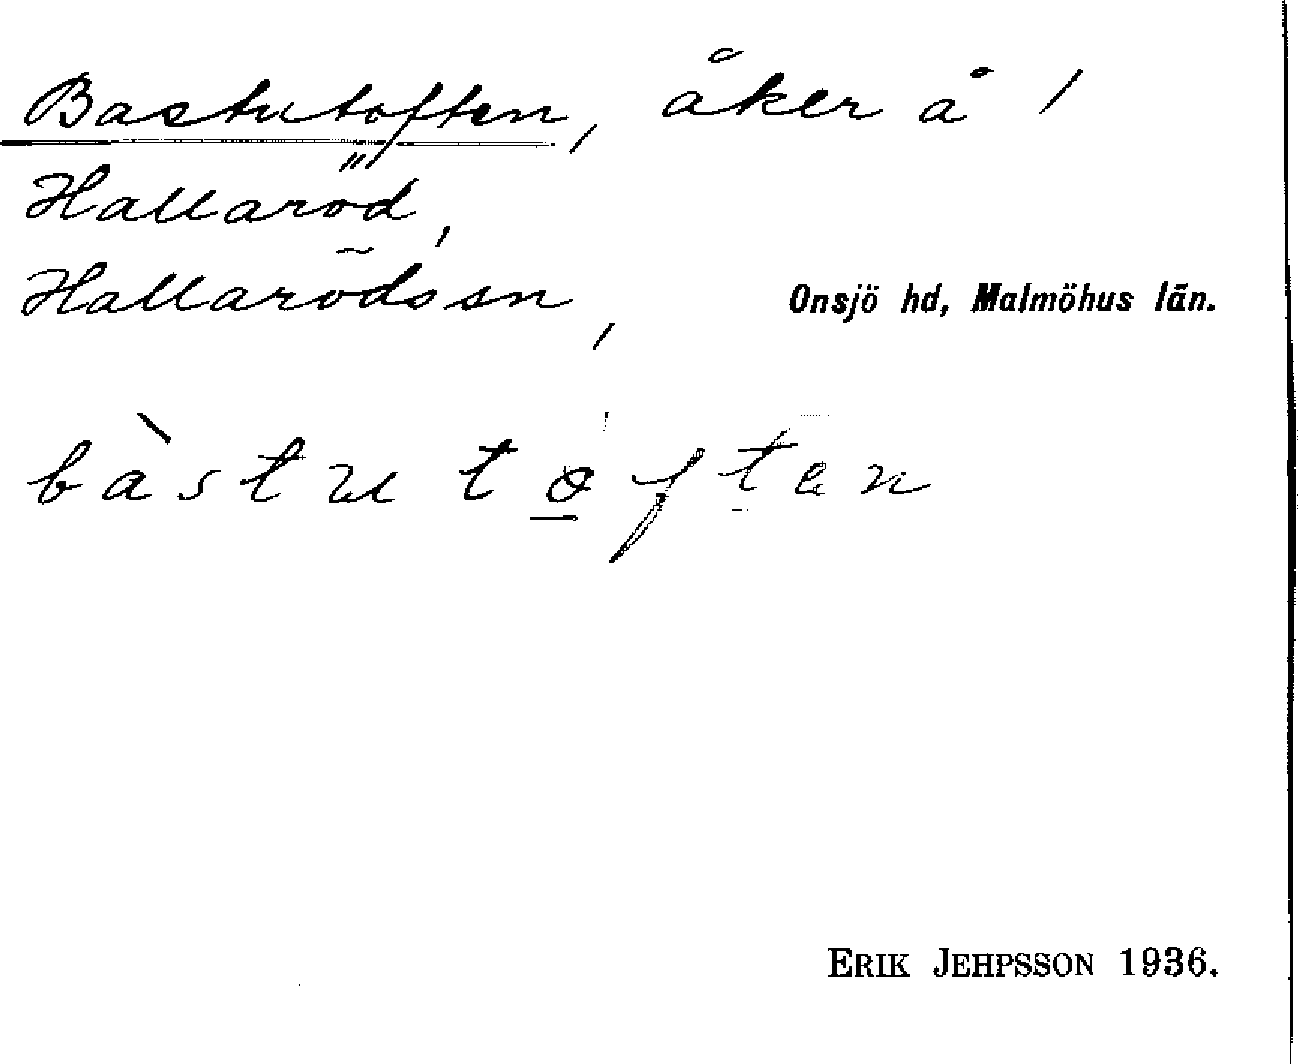 Bastutoften, åker å 1
Hallaröd,
Hallaröds sn, Onsjö hd, Malmöhus län.
bàstutoftən
ERIK JEHPSSON 1936.